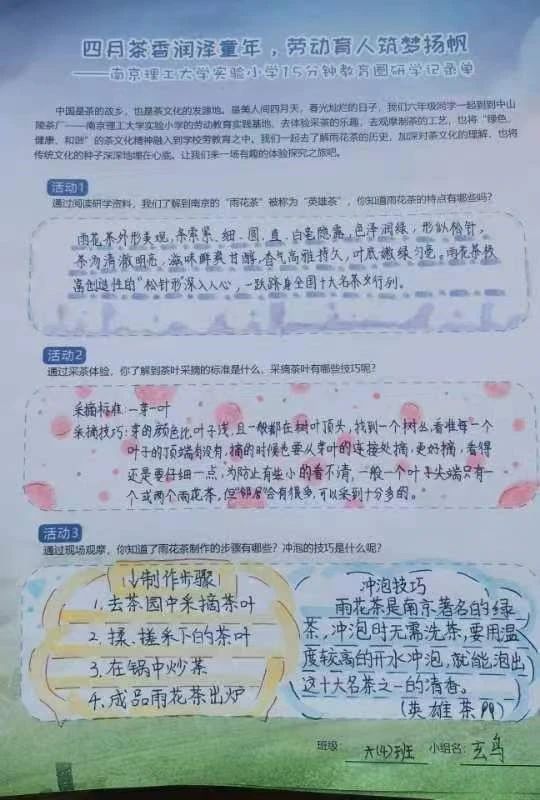 四月茶香润泽童年，劳动育人筑梦扬帆
——南京理工大学实验小学15分钟教育圈研学记录单
中国是茶的故乡，也是茶文化的发源地。最美人间四月天，春光灿烂的日子，我们六年级同学一起到到中山
陵茶厂——南京理工大学实验小学的劳动教育实践基地，去体验采茶的乐趣，去观摩制茶的工艺，也将“绿色、
健康、和谐”的茶文化精神融入到学校劳教育之中。我们一起去了解雨花茶的历史，加深对茶文化的理解，也将
传统文化的种子深深地埋在心底。让我们来一场有趣的体验探究之旅吧。
活动1
通过阅读研学资料，我们了解到南京的“雨花茶”被称为“英雄茶”，你知道雨花茶的特点有哪些吗？
雨花茶外形美观，条索紧、细、圆、直、白毫隐露，色泽润绿，形似松针，
茶汤清澈明亮，滋味鲜爽甘醇，香气高雅持久，叶底嫩绿匀亮。雨花茶极
富创造性的“松针形”深入人心，一跃跻身全国十大名茶之行列。
活动2
通过采茶体验，你了解到茶叶采摘的标准是什么，采摘茶叶有哪些技巧呢？
采摘标准：一芽一叶
采摘技巧：芽的颜色比叶子浅，且一般都在树叶顶头，找到一个树丛，看准每一个
叶子的顶端有没有，摘的时候也要从芽叶的连接处摘，更好摘，看得
还是要仔细一点，为防止有些小的看不清，一般一个叶子尖端只有一
个或两个雨花茶，但“邻居”会有很多，可以采到十分多的。
活动3
通过现场观摩，你知道了雨花茶制作的步骤有哪些？冲泡的技巧是什么呢？
制作步骤
1.去茶园中采摘茶叶
2.揉、搓采下的茶叶
3.在锅中炒茶
4.成品雨花茶出炉
冲泡技巧
雨花茶是南京著名的绿
茶，冲泡时无需洗茶，要用温
度较高的开水冲泡，就能泡出
这十大名茶之一的清香。
(英雄茶
班级：六(4)班 小组名：玄鸟